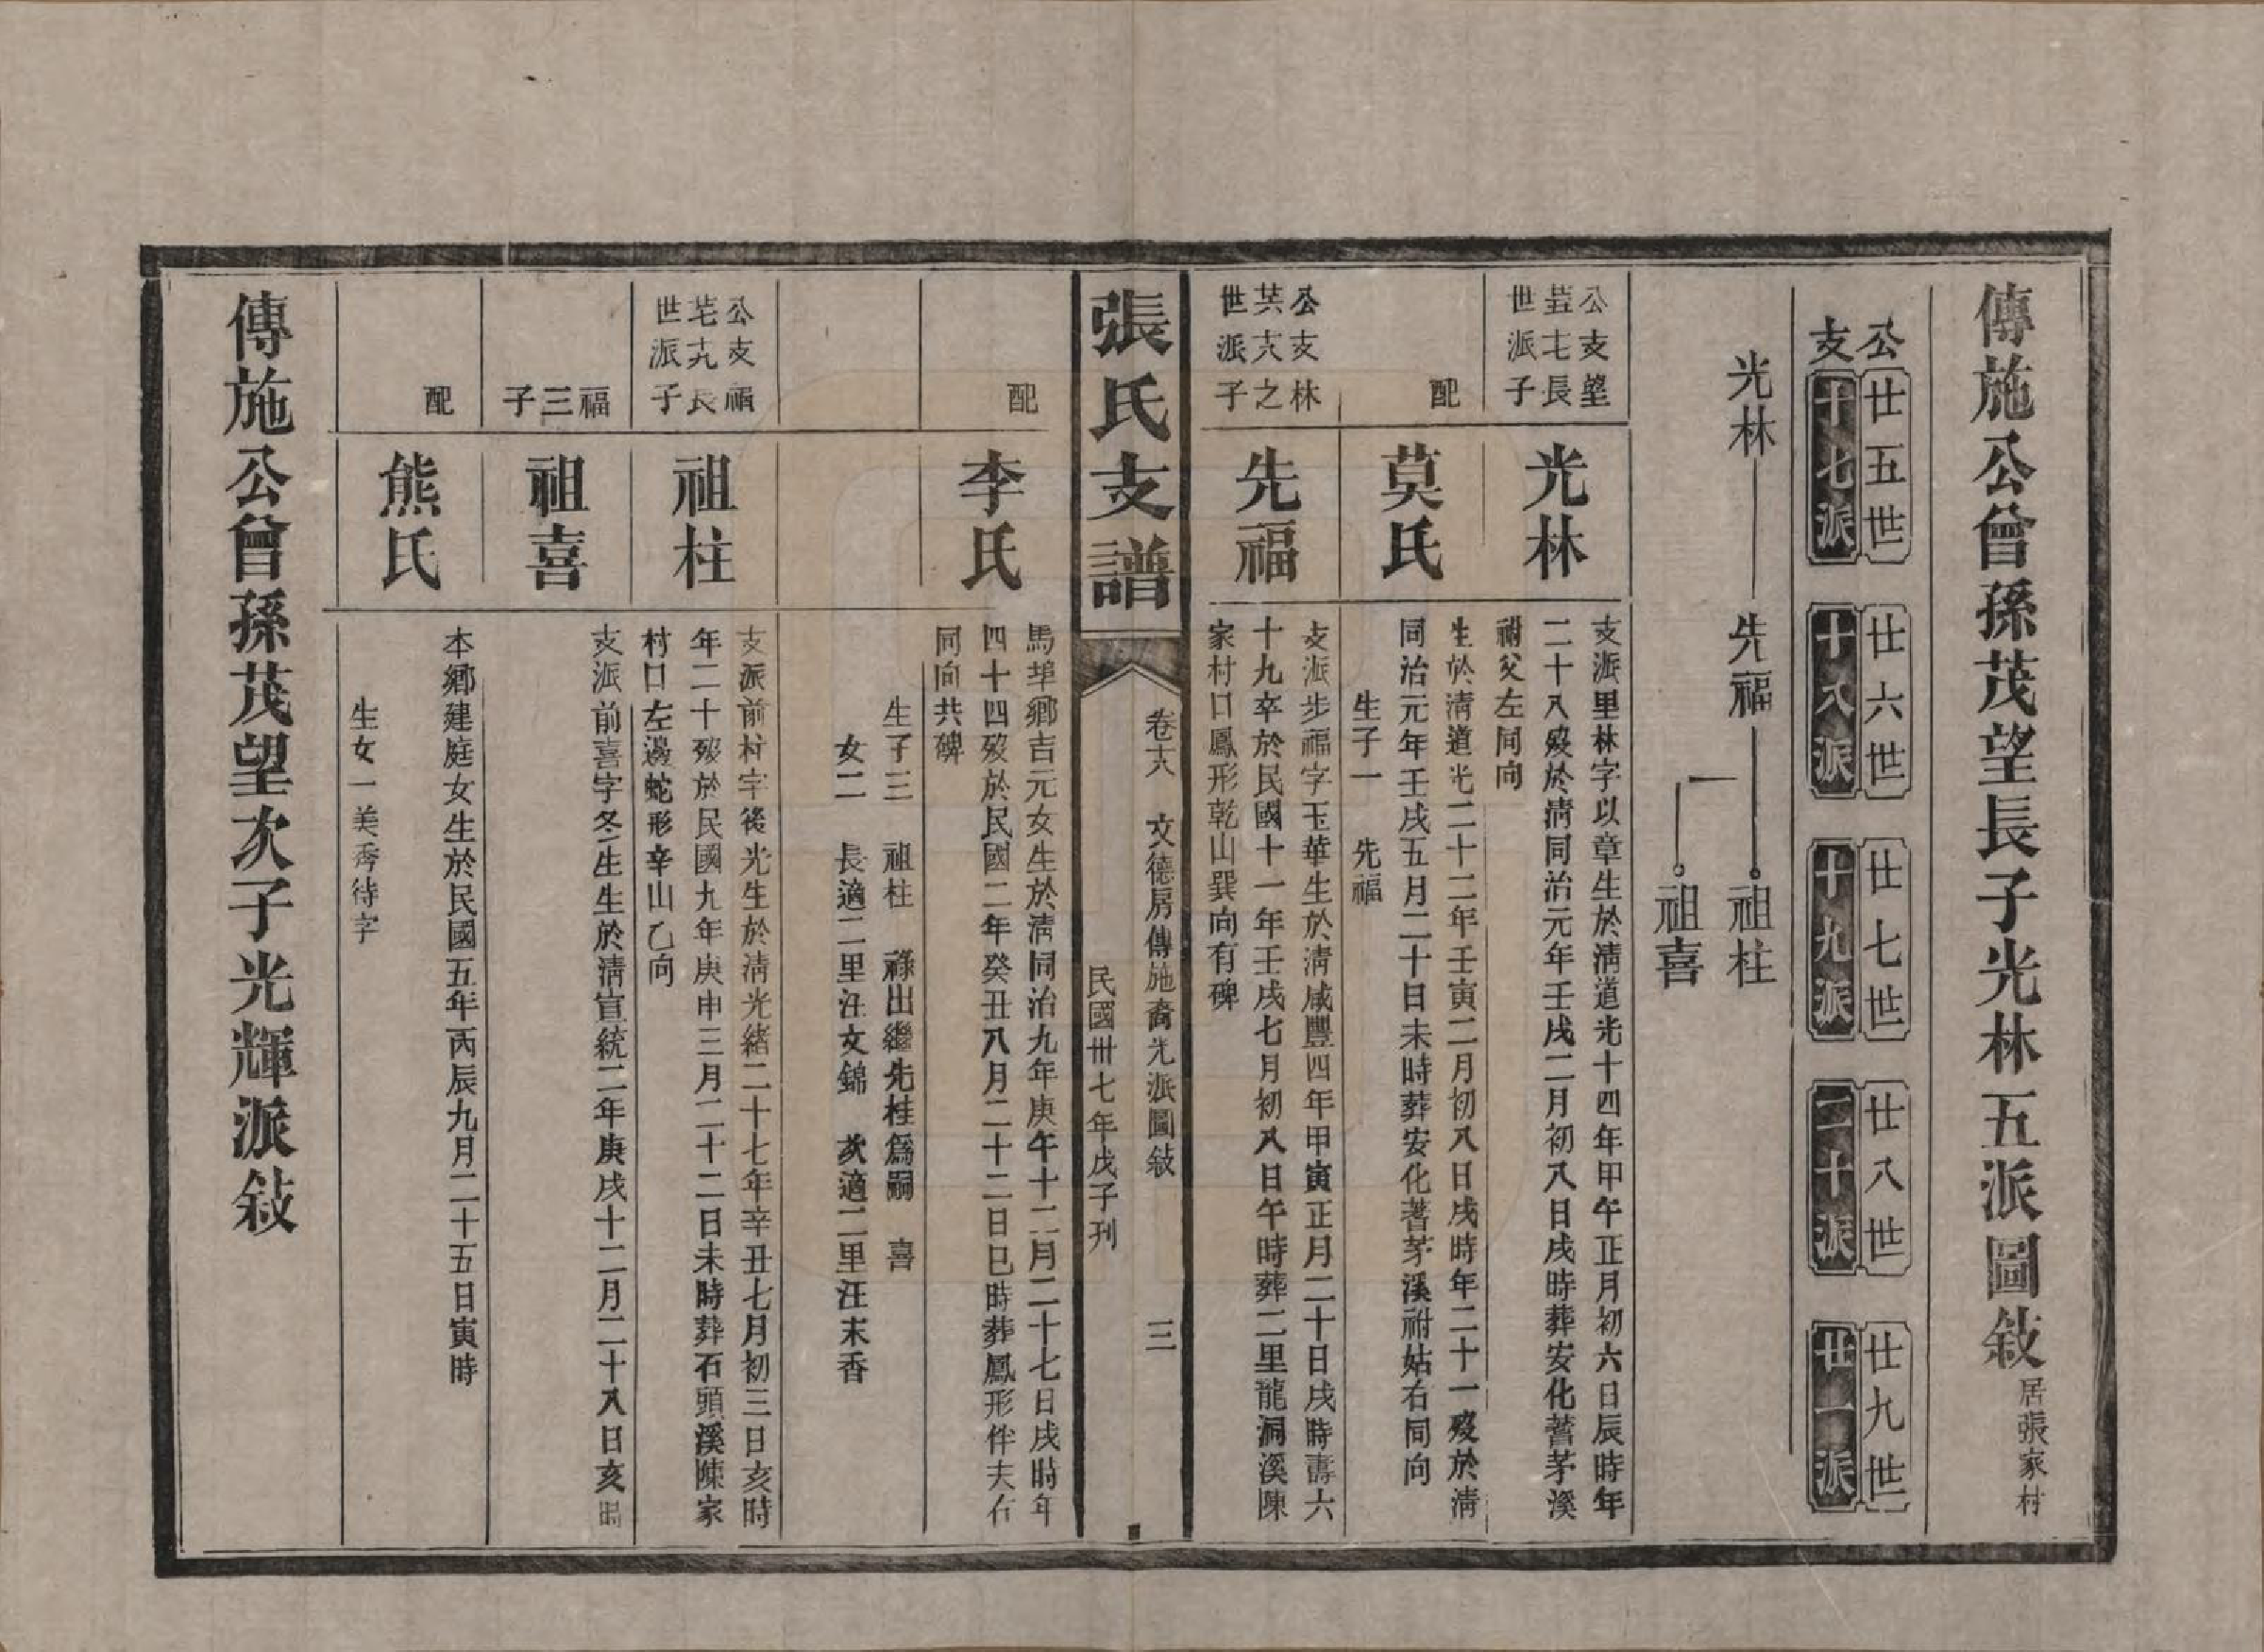 傳施公曾孫茂望長子光林五派圖敍 居張家村
公 廿五世 廿六世 廿七世 廿八世 廿九世
支 十七派 十八派 十九派 二十派 廿一派
光林 先福 祖柱
祖喜
公支望
廿五十七長
世派子
光林
支派里林字以章生於清道光十四年甲午正月初六日辰時年
二十八歿於清同治元年壬戌二月初八日戌時葬安化薯茅溪
祔父左同向
配
莫氏
生於清道光二十二年壬寅二月初八日戌時年二十一歿於清
同治元年壬戌五月二十日未時葬安化薯茅溪祔姑右同向
生子一 先福
公支林
廿六十八之
世派子
先福
支派步福字玉華生於清咸豐四年甲寅正月二十日戌時壽六
十九卒於民國十一年壬戌七月初八日午時葬二里龍洞溪陳
家村口鳳形乾山巽向有碑
張氏支譜
卷十八 文德房傳施裔光派圖敍 三
民國卅七年戊子刊
配
李氏
馬埠鄉吉元女生於清同治九年庚午十二月二十七日戌時年
四十四歿於民國二年癸丑八月二十二日巳時葬鳳形伴夫右
同向共碑
生子三 祖柱 祿出繼先桂爲嗣 喜
女二 長適二里汪文錦 次適二里汪末香
公支福
廿七十九長
世派子
祖柱
支派前村字後光生於清光緒二十七年辛丑七月初三日亥時
年二十歿於民國九年庚申三月二十二日未時葬石頭溪陳家
村口左邊蛇形辛山乙向
福三子
祖喜
支派前喜字冬生生於清宣統二年庚戌十二月二十八日亥時
配
熊氏
本鄉建庭女生於民國五年丙辰九月二十五日寅時
生女一美秀待字
傳施公曾孫茂望次子光輝派敍